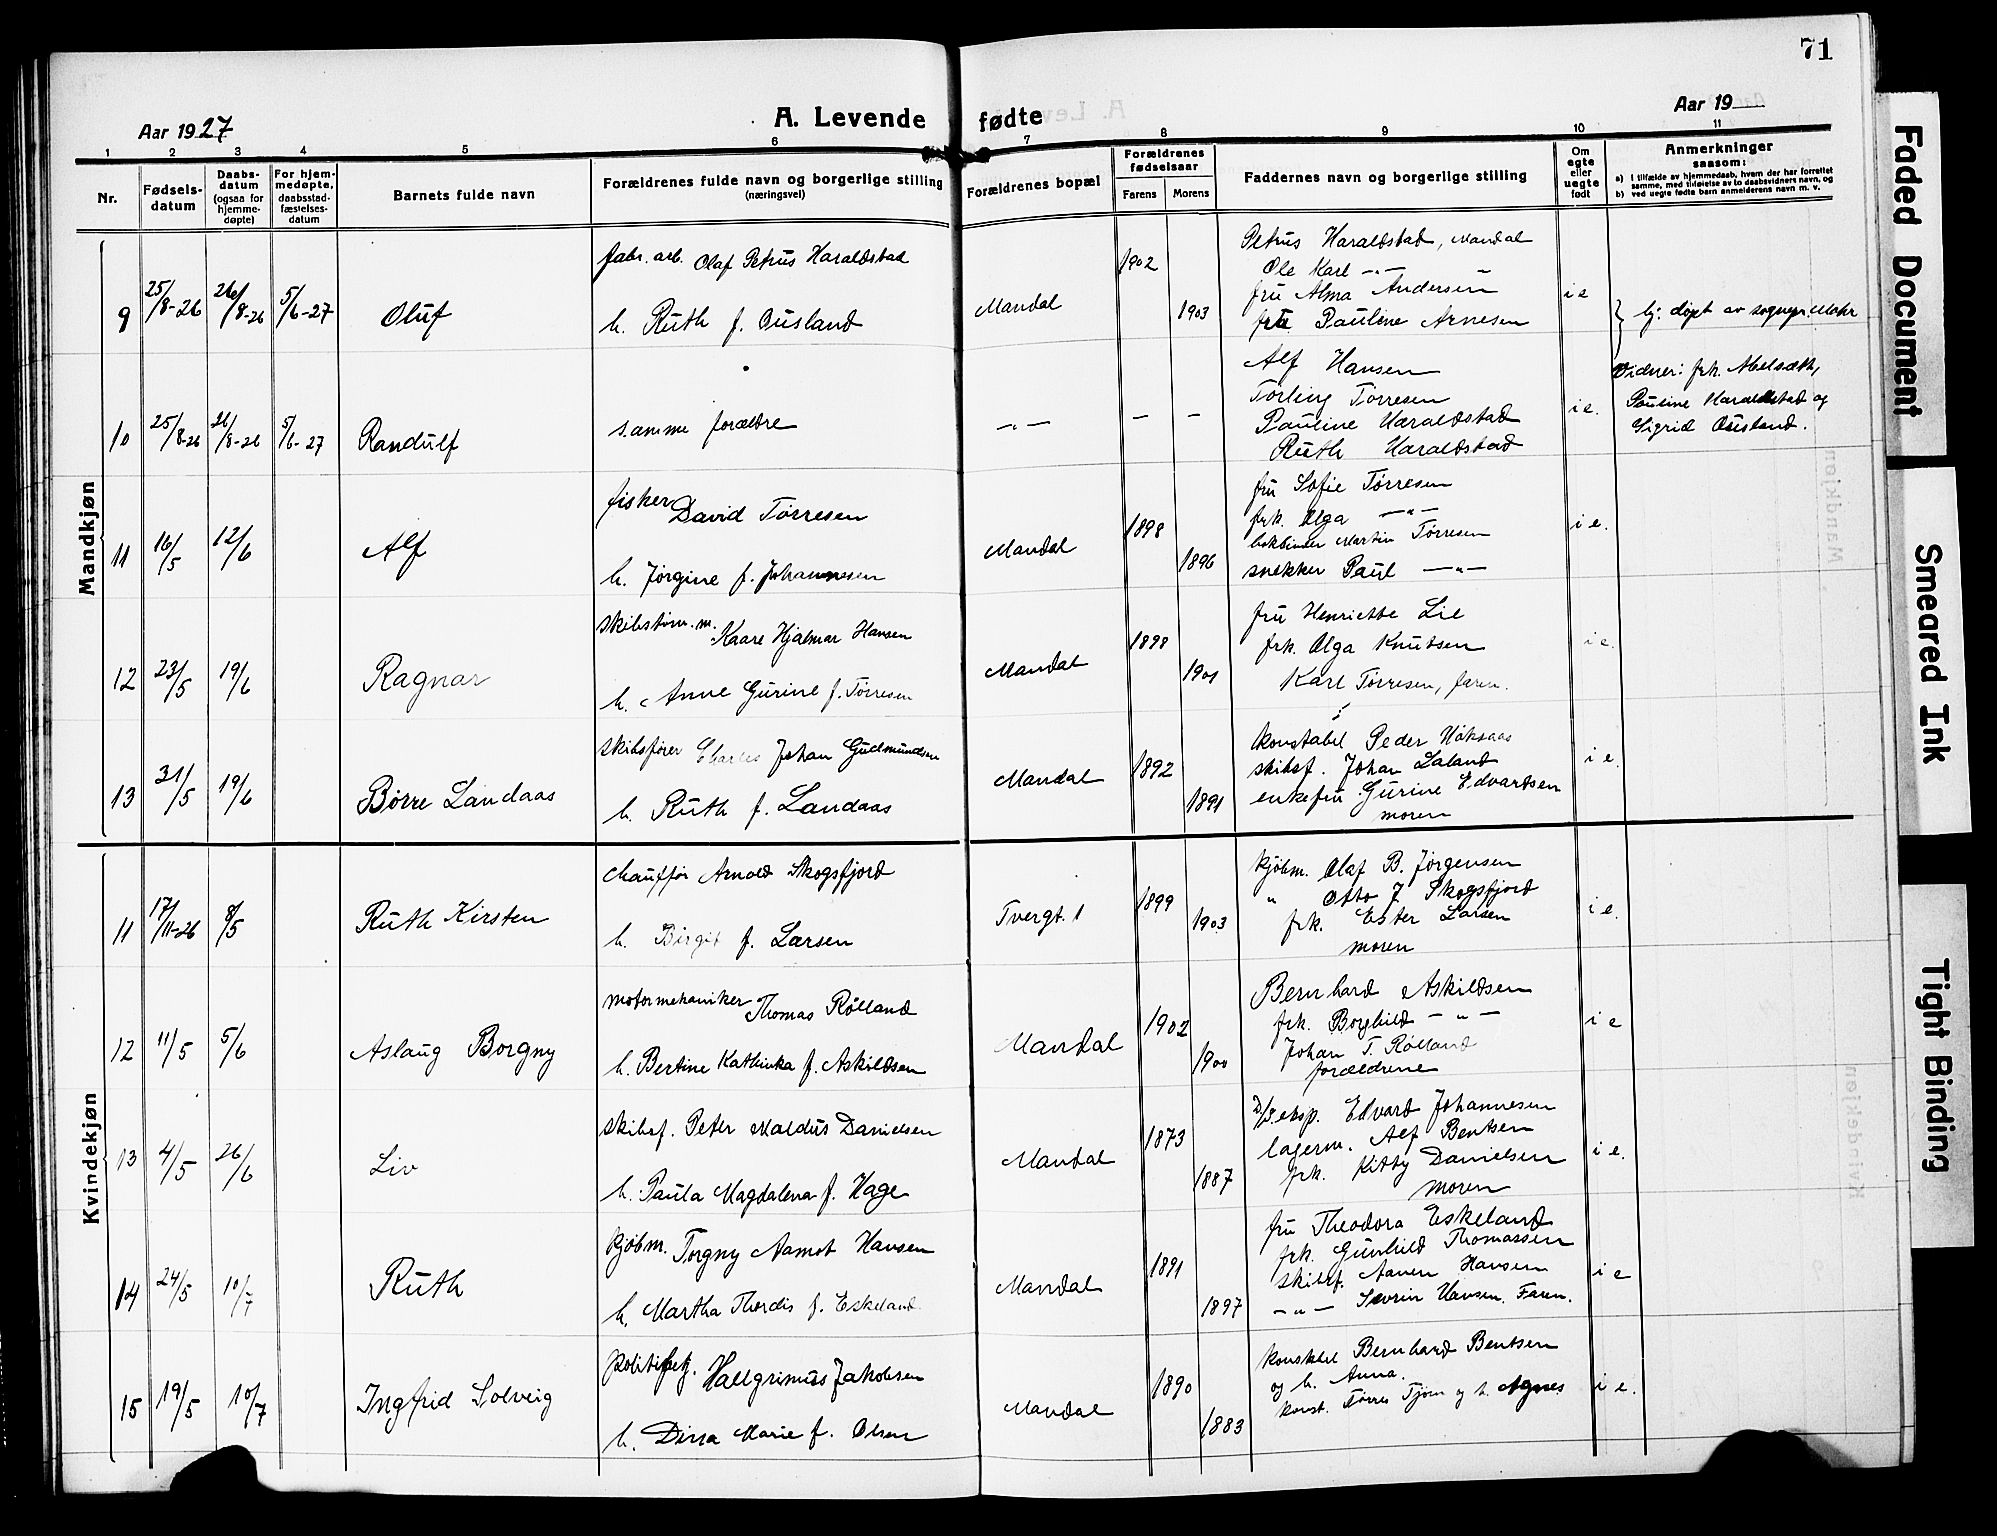 71
Aar 1927
A. Levende fødte
Aar 19
1 2 3 4 5 6 7 8 9 10 11
Nr.
Fødsels-
datum
Daabs-
datum
(ogsaa for
hjemme-
døpte)
For hjem-
medøpte,
daabsstad-
fæstelses-
datum
Barnets fulde navn
Forældrenes fulde navn og borgerlige stilling
(næringsvei)
Forældrenes bopæl
Forældrenes
fødselsaar
Farens Morens
Faddernes navn og borgerlige stilling
Om
egte
eller
uegte
født
Anmerkninger
saasom:
a) I tilfælde av hjemmedaab, hvem der har forrettet
samme, med tilføielse av to daabsvidners navn, og
b) ved uegte fødte barn anmelderens navn m. v.
Mandkjøn
9 25/8-26 26/8-26 5/6-27 Oluf
fabr. arb. Olaf Petrus Haraldstad
h. Ruth f. Ousland
Mandal 1902 1903
Petrus Haraldstad, Mandal
Ole Karl -"-
fru Alma Andersen
fru Pauline Arnesen
i e
hj. døpt av sognepr. Mohr
10 25/8-26 26/8-26 5/6-27 Randulf
samme forældre
-"- - -
Alf Hansen
Torling Tørresen
Pauline Haraldstad
Ruth Haraldstad
i e.
Vidner: frk. Abelsæth,
Pauline Haraldstad og
Sigrid Ousland.
11 16/5 12/6 Alf
fisker David Tørresen
h. Jørgine f. Johannesen
Mandal 1898 1896
fru Sofie Tørresen
frk. Olga -"-
bokbinder Martin Tørresen
snekker Paul -"-
i e.
12 23/5 19/6 Ragnar
skibstøm. m. Kaare Hjalmar Hansen
h. Anne Gurine f. Tørresen
Mandal 1898 1901
fru Henriette Lie
frk. Olga Knutsen
Karl Tørresen, faren.
i e.
13 31/5 19/6 Børre Landaas
skibsfører Charles Johan Gudmundsen
h. Ruth f. Landaas
Mandal 1892 1891
konstabel Peder Høksaas
skibsf. Johan Laland
enkefru Gurine Edvardsen
moren
i e.
Kvindekjøn
11 17/11-26 8/5 Ruth Kirsten
chauffør Arnold Skogsfjord
h. Birgit f. Larsen
Tvergt. 1 1899 1903
kjøbm. Olaf B. Jørgensen
" Otto J. Skogsfjord
frk. Ester Larsen
moren
i e.
12 11/5 5/6 Aslaug Borgny
motormekaniker Thomas Rølland
h. Bertine Kathinka f. Askildsen
Mandal 1902 1900
Bernhard Askildsen
frk. Borghild -"-
Johan T. Rølland
forældrene
i e
13 4/5 26/6 Liv
skibsf. Peter Maldus Danielsen
h. Paula Magdalena f. Hage
Mandal 1873 1887
D/S.eksp. Edvard Johannesen
lagerm. Alf Bentsen
frk. Kitty Danielsen
moren
i e.
14 24/5 10/7 Ruth
kjøbm. Torgny Aamot Hansen
h. Martha Thordis f. Eskeland
Mandal 1891 1897
fru Theodora Eskeland
frk. Gunhild Thomassen
skibsf. Aanen Hansen
-"- Sevrin Hansen. Faren.
i e
15 19/5 10/7 Ingfrid Solveig
politibetj. Hallgrimus Jakobsen
h. Dina Marie f. Olsen
Mandal 1890 1883
konstbl Bernhard Bentsen
og h. Anna.
konst. Tørres Tjøm og h. Agnes
i e.
Faded Document
Smeared Ink
Tight Binding